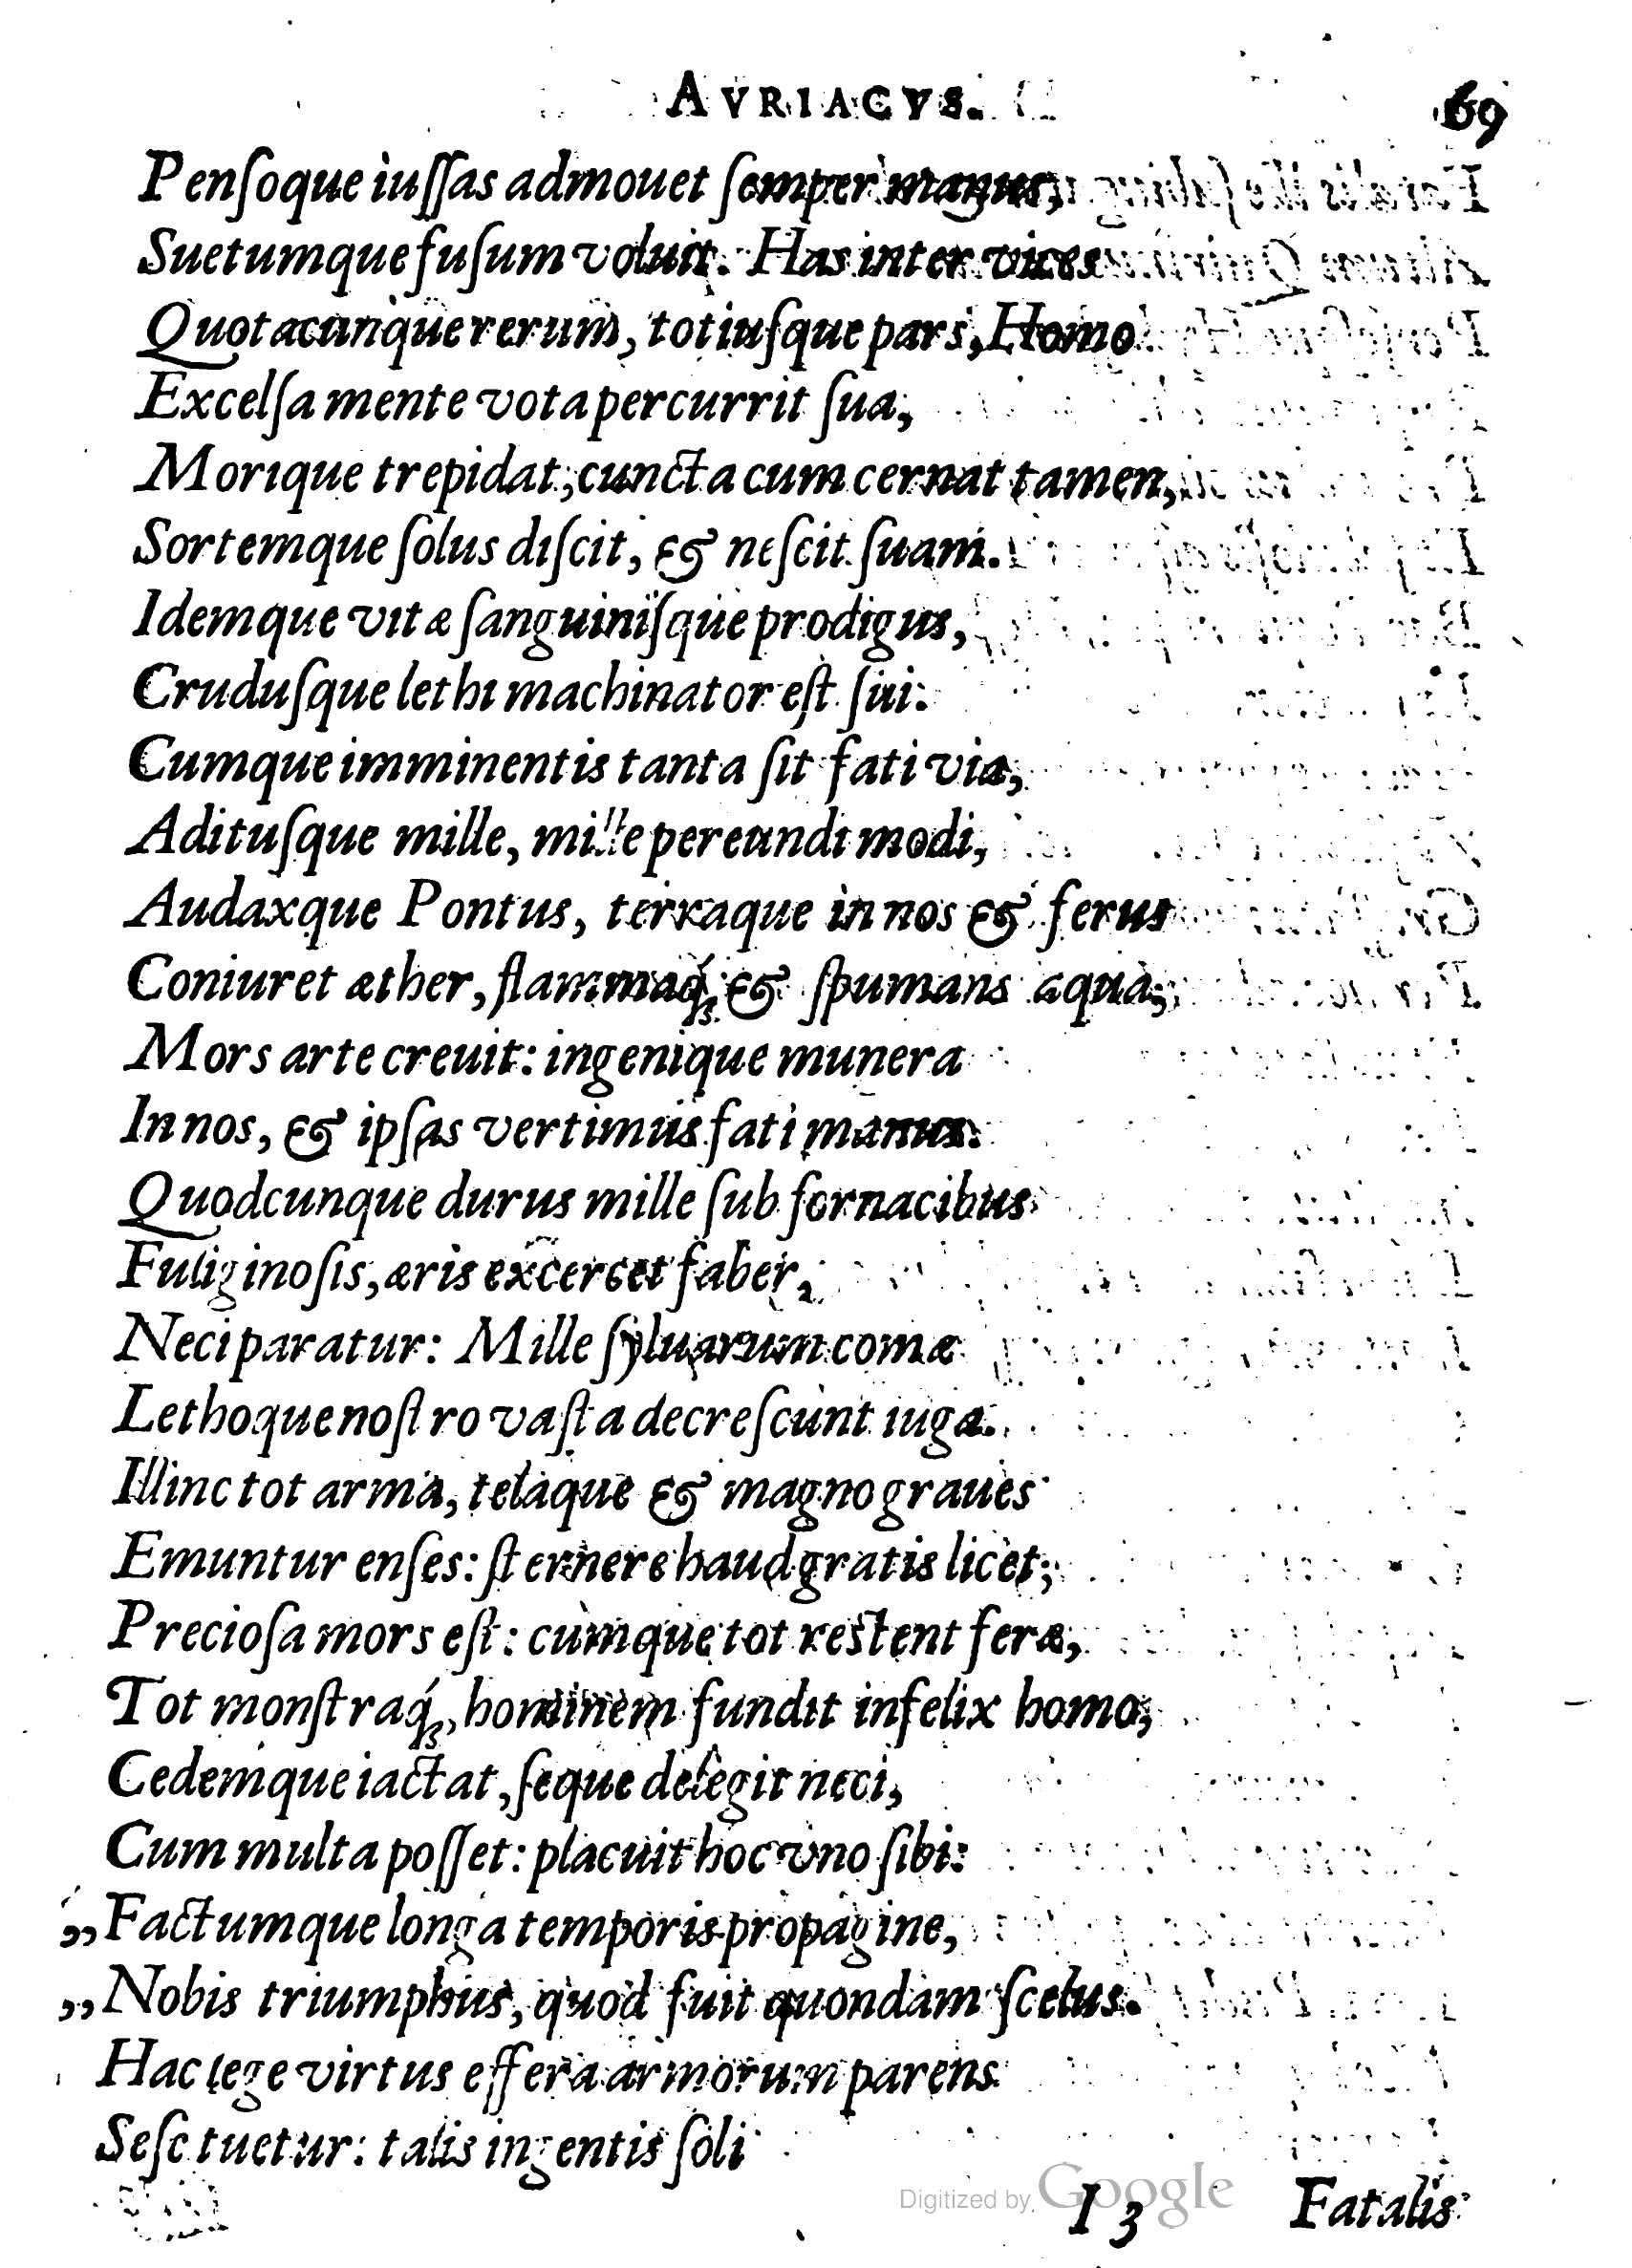 AVRIACVS. 69
Penſoque iuſſas admouet ſemper manus,
Suetumque fuſum voluit. Has inter vices
Quotacunque rerum, totiuſque pars, Homo
Excelſa mente vota percurrit ſua,
Morique trepidat; cuncta cum cernat tamen,
Sortemque ſolus diſcit, & neſcit ſuam.
Idemque vitæ ſanguiniſque prodigus,
Cruduſque lethi machinator eſt ſui:
Cumque imminentis tanta ſit fati via,
Adituſque mille, mille pereundi modi,
Audaxque Pontus, terraque in nos & ferus
Coniuret æther, flammaq́; & ſpumans aqua;
Mors arte creuit: ingenique munera
In nos, & ipſas vertimus fati manus.
Quodcunque durus mille ſub fornacibus
Fuliginoſis, æris excercet faber,
Neci paratur: Mille ſyluarum comæ
Lethoque noſtro vaſta decreſcunt iuga.
Illinc tot arma, telaque & magno graues
Emuntur enſes: ſternere haud gratis licet;
Precioſa mors eſt: cumque tot reſtent feræ,
Tot monſtraq́;, hominem fundit infelix homo,
Cedemque iactat, ſeque delegit neci,
Cum multa poſſet: placuit hoc vno ſibi:
„Factumque longa temporis propagine,
„Nobis triumphus, quod fuit quondam ſcelus.
Hac lege virtus effera armorum parens
Seſe tuetur: talis ingentis ſoli
Digitized by Google
I 3 Fatalis